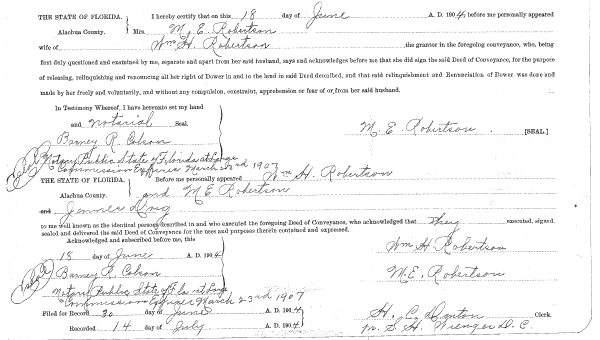 THE STATE OF FLORIDA. I hereby certify that on this 18 day of June A. D. 1904, before me personally appeared
Alachua County. Mrs. M. E. Robertson
wife of Wm H. Robertson the grantor in the foregoing conveyance, who, being
first duly questioned and examined by me, separate and apart from her said husband, says and acknowledges before me that she did sign the said Deed of Conveyance, for the purpose
of releasing, relinquishing and renouncing all her right of Dower in and to the land in said Deed described, and that said relinquishment and Renunciation of Dower was done and
made by her freely and voluntarily, and without any compulsion, constraint, apprehension or fear of or from her said husband.
In Testimony Whereof, I have hereunto set my hand
and notarial Seal. M. E. Robertson. [SEAL.]
Barney R. Colson
Notary Public State of Florida at Large
Commission Expires March 23rd 1907
THE STATE OF FLORIDA. Before me personally appeared Wm H. Robertson
Alachua County. and M E Robertson
and
to me well known as the identical persons described in and who executed the foregoing Deed of Conveyance, who acknowledged that they executed, signed,
sealed and delivered the said Deed of Conveyance for the uses and purposes therein contained and expressed.
Acknowledged and subscribed before me, this
18 day of June A. D. 1904 Wm H Robertson
Barney R. Colson M.E. Robertson
Notary Public State of Fla at Large
Commission Expires March 23rd 1907
Filed for Record 20 day of June A. D. 1904 H. C. Denton Clerk.
Recorded 14 day of July A. D. 1904 S. H. Wienges D. C.